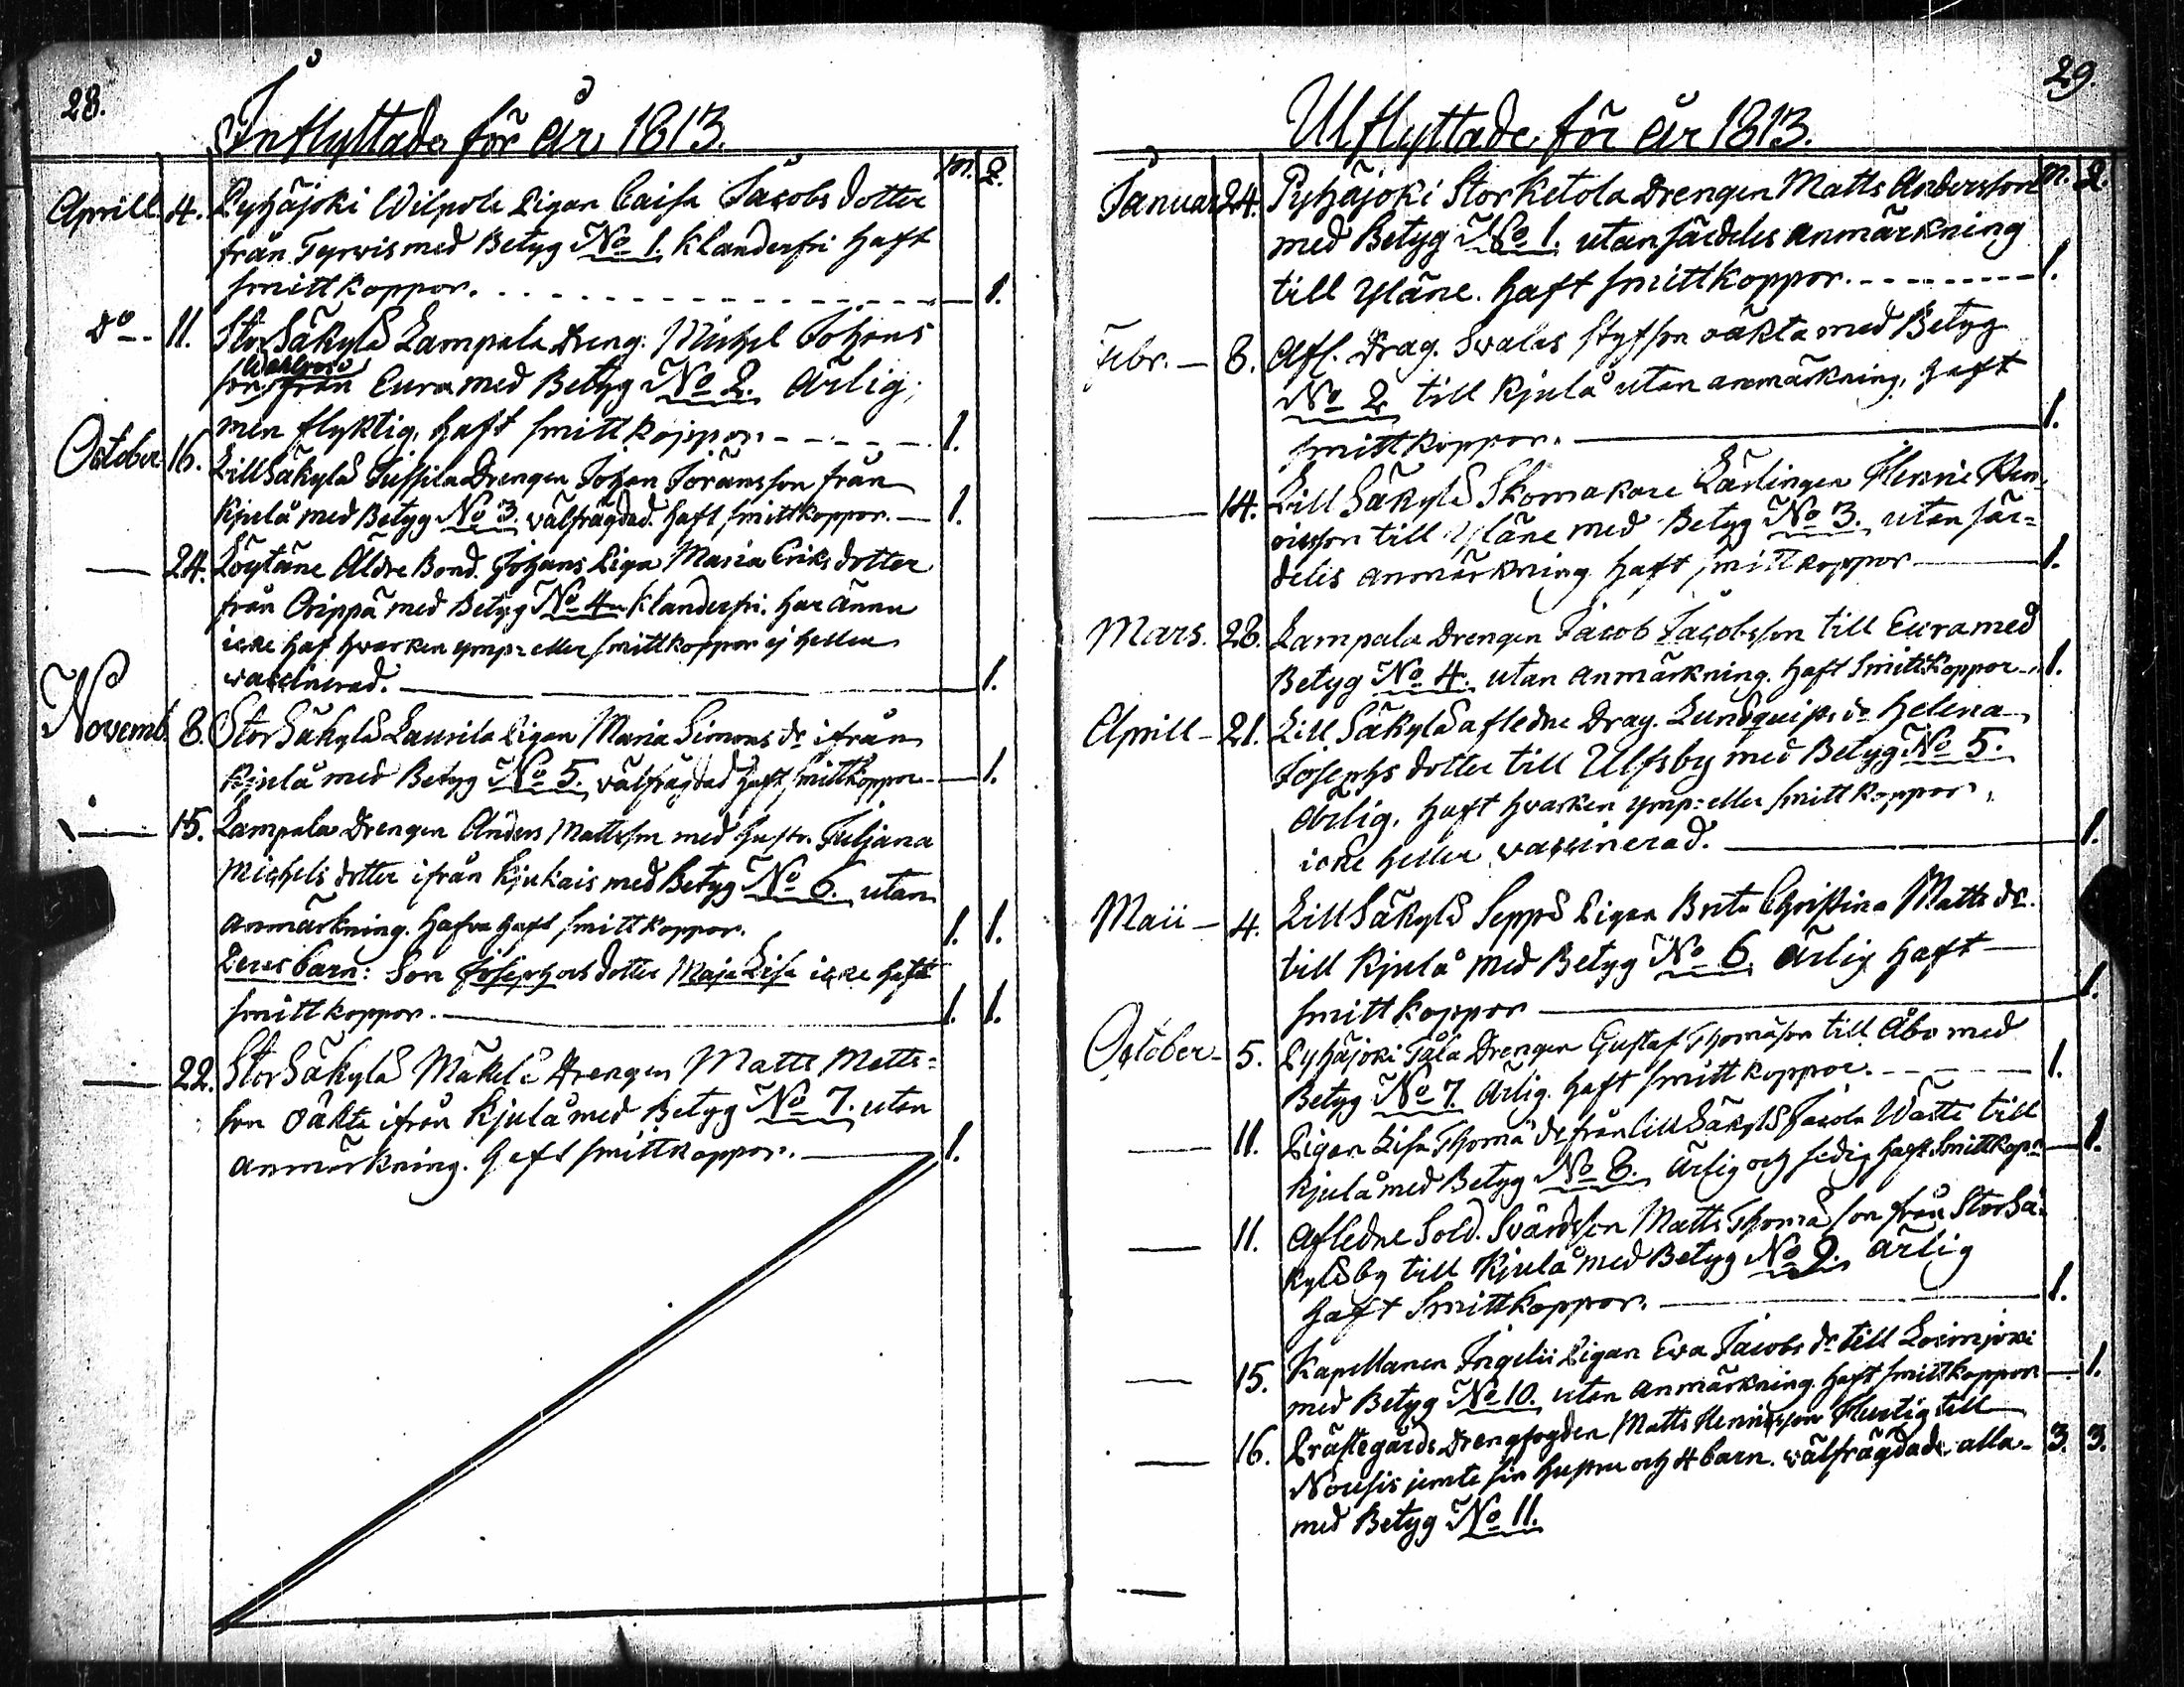 28.
Inflyttade för år 1813.
M. Q.
Aprill. 4. Pyhäjoki Wilpola Pigan Caisa Jacobs dotter
från Tyrvis med Betyg No 1. klanderfri haft
smittkoppor. 1.
Do 11. Stor Säkylä Lampala Dreng. Michel Johans
Wahlroos
son från Eura med Betyg No 2. Ärlig;
men flyktig, haft smittkoppor 1.
October 16. Lill Säkylä Jussila Drengen Johan Jöransson från
Kjulå med Betyg No 3. välfrägdad. haft smittkoppor. 1.
24. Löytäne Äldre Bond. Johans Piga Maria Eriks dotter
från Orippä med Betyg No 4. klanderfri. har ännu
icke haf hvarken ymp- eller smittkoppor ej heller
vaccinerad. 1.
Novemb. 8. Stor Säkylä Laurila Pigan Maria Simons dr ifrån
Kjulå med Betyg No 5. välfrägdad haft smittkoppor 1.
15. Lampala Drengen Anders Mattsson med hustr. Juljana
Michels dotter ifrån Kjukais med Betyg No 6. utan
anmärkning. Hafva haft smittkoppor. 1. 1.
Deras barn: Son Joseph och dotter Maja Lisa icke haft
smittkoppor. 1. 1.
22. Stor Säkylä Mäkelä Drengen Matts Matts-
son oäkta ifrån Kjulå med Betyg No 7. utan
anmärkning. haft smittkoppor. 1.
29.
Utflyttade för år 1813.
M. Q.
Januar 24. Pyhäjoki Storketola Drengen Matts Andersson
med Betyg No 1. utan särdeles anmärkning
till Yläne. haft smittkoppor. 1.
Febr. 8. Afl. Drag. Svalas styfson oäkta med Betyg
No 2 till Kjulå utan anmärkning, haft
smittkoppor. 1.
14. Lill Säkylä Skomakare Lärlingen Henric Hen-
ricsson till Yläne med Betyg No 3. utan sär-
deles anmärkning haft smittkoppor 1.
Mars. 28. Lampala Drengen Jacob Jacobsson till Eura med
Betyg No 4. utan anmärkning. haft Smittkoppor 1.
Aprill 21. Lill Säkylä afledne Drag. Lundquists dr Helena
Josephs dotter till Ulfsby med Betyg No 5.
ärlig. haft hvarken ymp- eller smittkoppor,
icke heller vaccinerad. 1.
Maii 4. Lill Säkylä Seppä Pigan Brita Christina Matts dr.
till Kjulå med Betyg No 6. Ärlig haft
smittkoppor 1.
October 5. Pyhäjoki Tåla Drengen Gustaf Thomasson till Åbo med
Betyg No 7. Ärlig. haft smittkoppor. 1.
11. Pigan Lisa Thomæ dr från Lill Säkylä Jacola till
Kjulå med Betyg No 8. Ärlig och sedig haft Smittkop. 1.
11. Afledne Sold. Svärds son Matts Thomæ son från Stor Sä-
kylä by till Kjulå med Betyg No 9. ärlig
haft Smittkoppor. 1.
15. Kapellanen Ingelii Pigan Eva Jacobs dr till Loimjoki
med Betyg No 10. utan anmärkning. haft smittkoppor 1.
16. Prästegårds Drengfogden Matts Henricsson Hurtig till
Nousis jemte sin hustru och 4 barn. välfrägdade alla 3. 3.
med Betyg No 11.